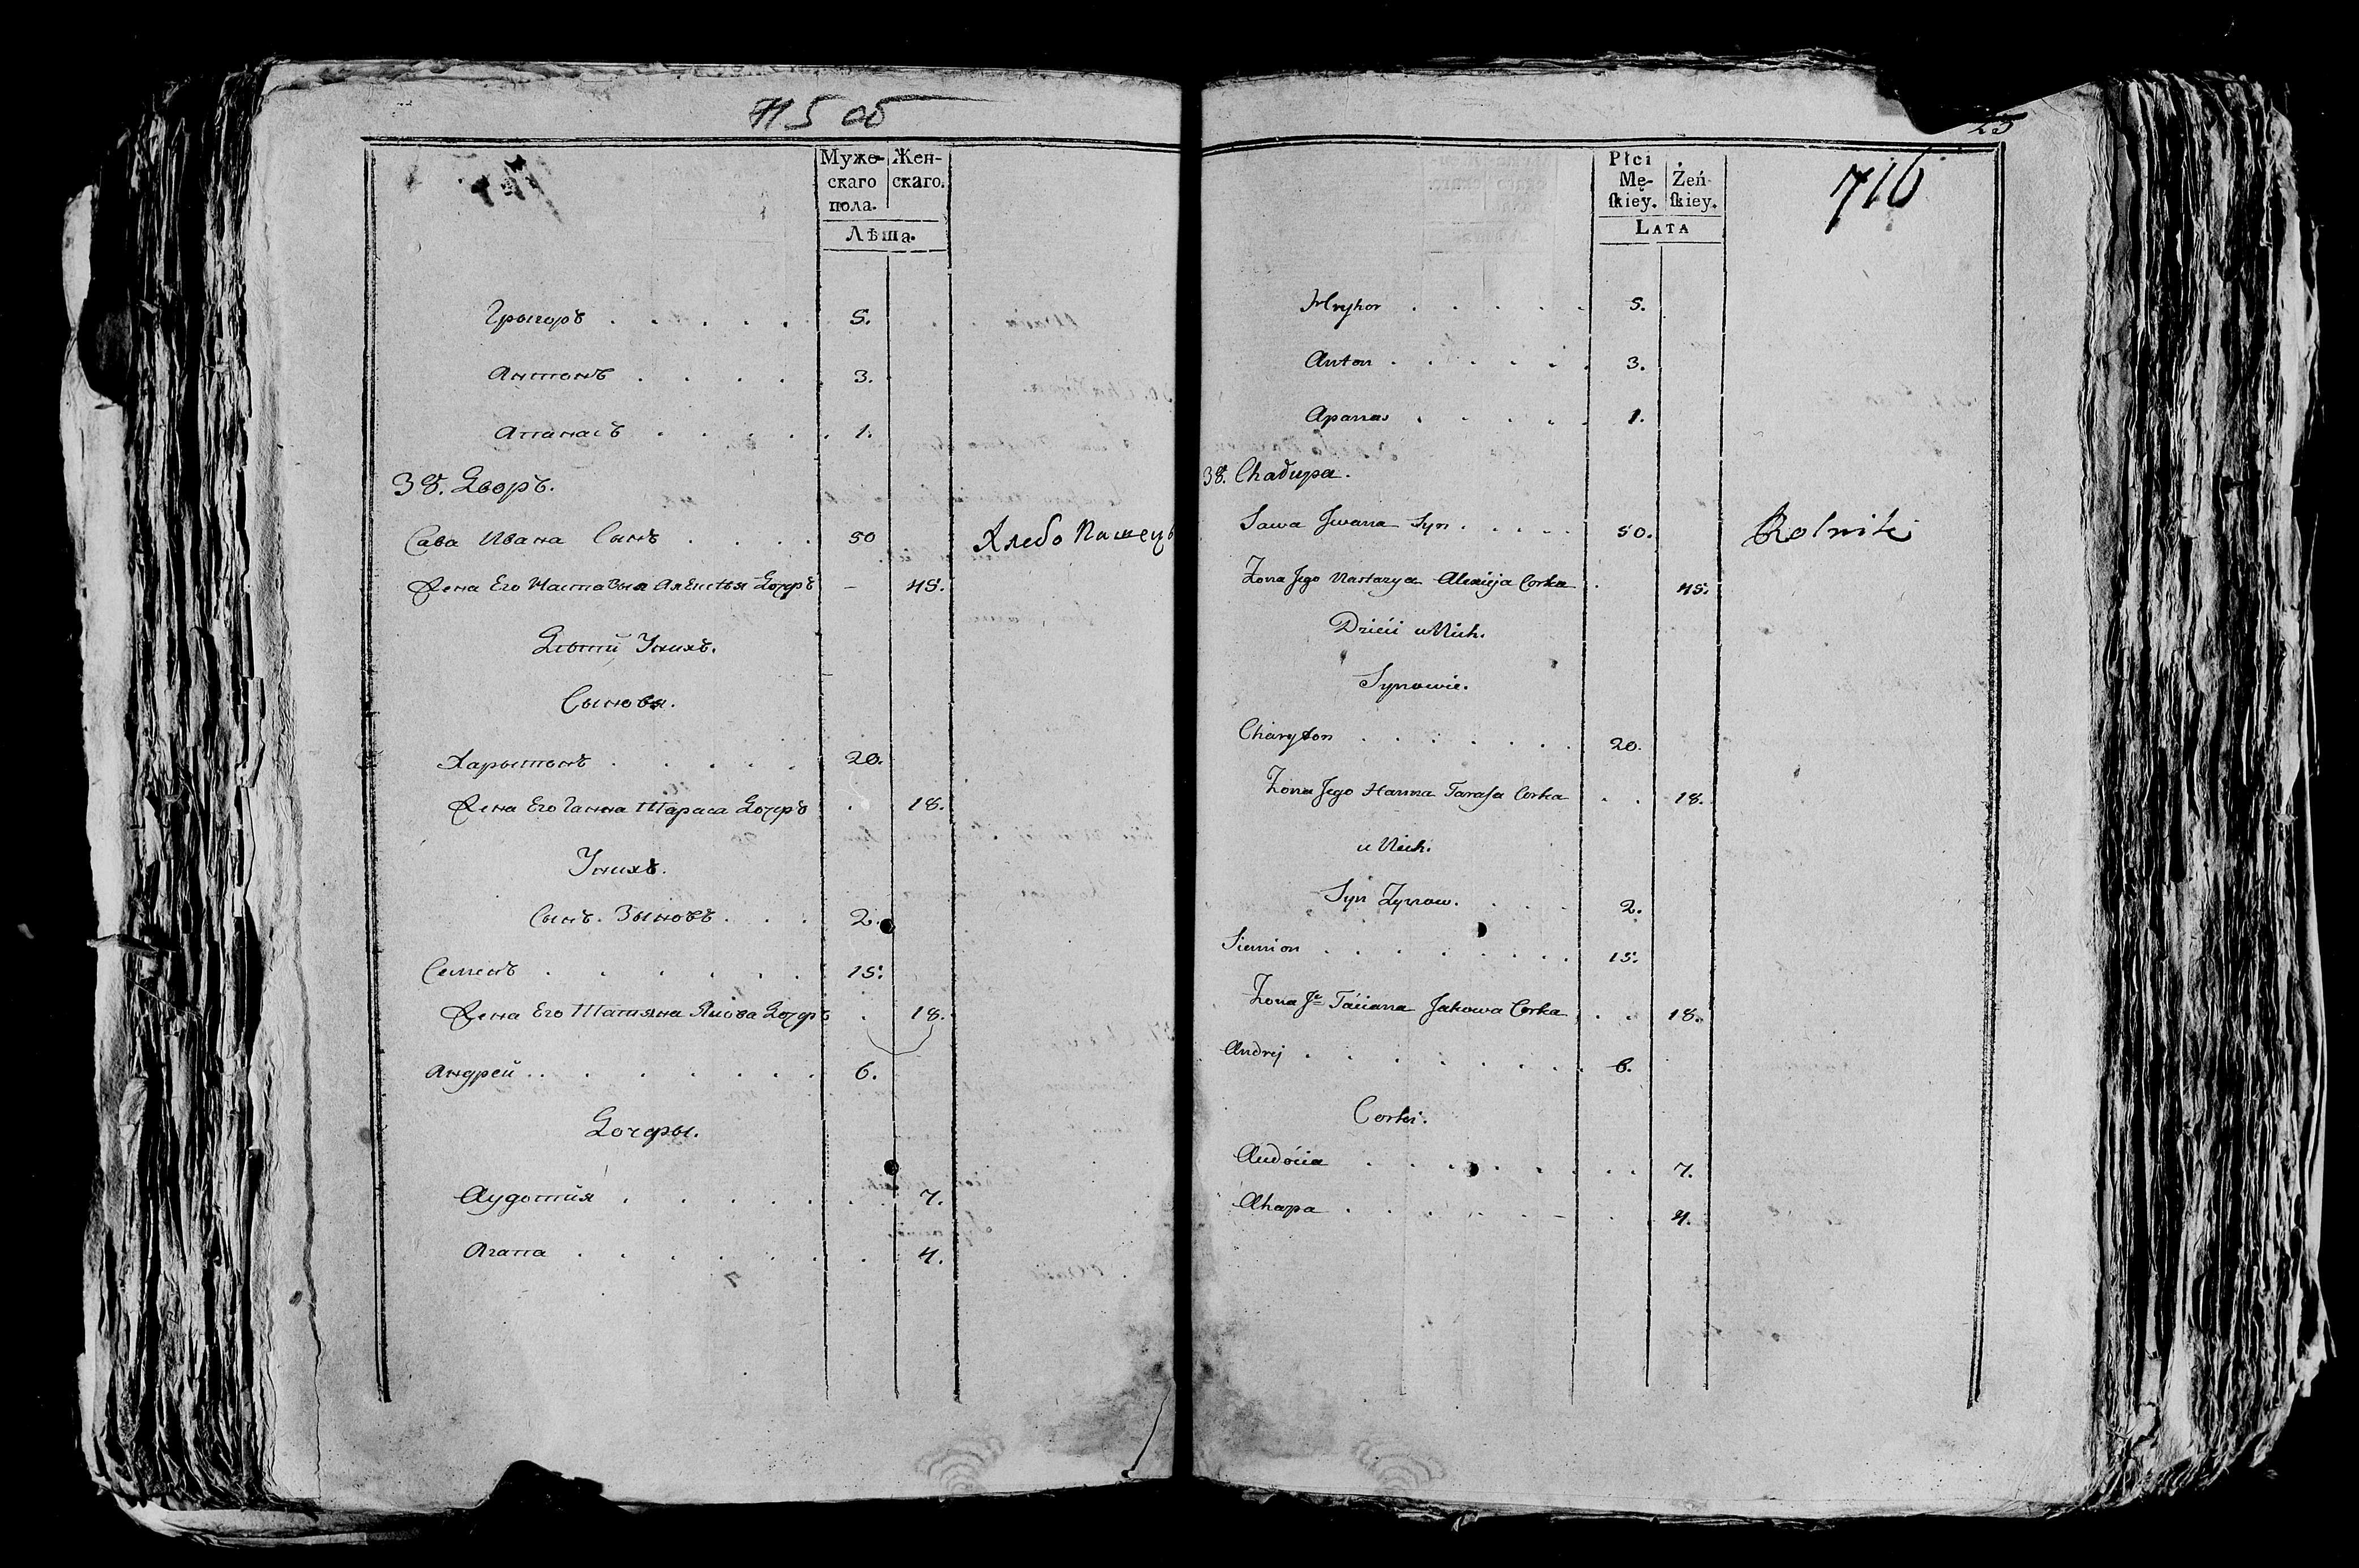 715 об
Муже- Жен-
скаго скаго.
пола.
Лѣта.
Грыгоръ . . . . . 5.
Антонъ . . . . . 3.
Апанасъ . . . . . 1.
38. Дворъ.
Сава Ивана Сынъ . . . . 50 Хлебо Пашецъ
Жена Его Настазыя Алексѣя Дочеръ – 45.
Дѣтіи Унихъ.
Сыновя.
Харытонъ . . . . . 20.
Жена Его Ганна Тараса Дочеръ . 18.
Унихъ.
Сынъ. Зыновъ . . . 2.
Семенъ . . . . . . 15.
Жена Его Татияна Якова Дочеръ . 18.
Андрей . . . . . . . 6.
Дочеры.
Аудотия . . . . . . 7.
Агапа . . . . . . . 4.
25
716
Płci
Mę- Żeń-
ſkiey. ſkiey.
LATA
Hryhor . . . . . 5.
Anton . . . . . 3.
Apanas . . . . . 1.
38. Chałupa.
Sawa Jwana Syn . . . . . 50. Rolnik
Zona Jego Nastazya Alexieja Corka . 45.
Dzieći u Nich.
Synowie.
Charyton . . . . . . . 20.
Zona Jego Hanna Tarasa Corka . . 18.
u Nich.
Syn Zynow. . . . 2.
Siemion . . . . . . . . 15.
Zona Jo Taćiana Jakowa Corka . . 18.
Andrej . . . . . . . . 6.
Corki.
Audoćia . . . . . . . . 7.
Ahapa . . . . . . . 4.